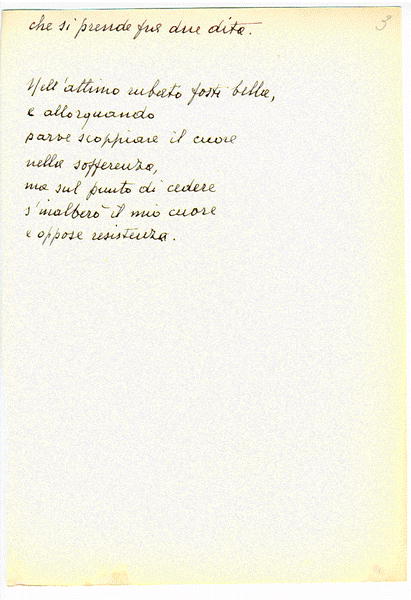 3
che si prende fra due dita.
Nell'attimo rubato fosti bella,
e allorquando
parve scoppiare il cuore
nella sofferenza,
ma sul punto di cedere
s'inalberò il mio cuore
e oppose resistenza.